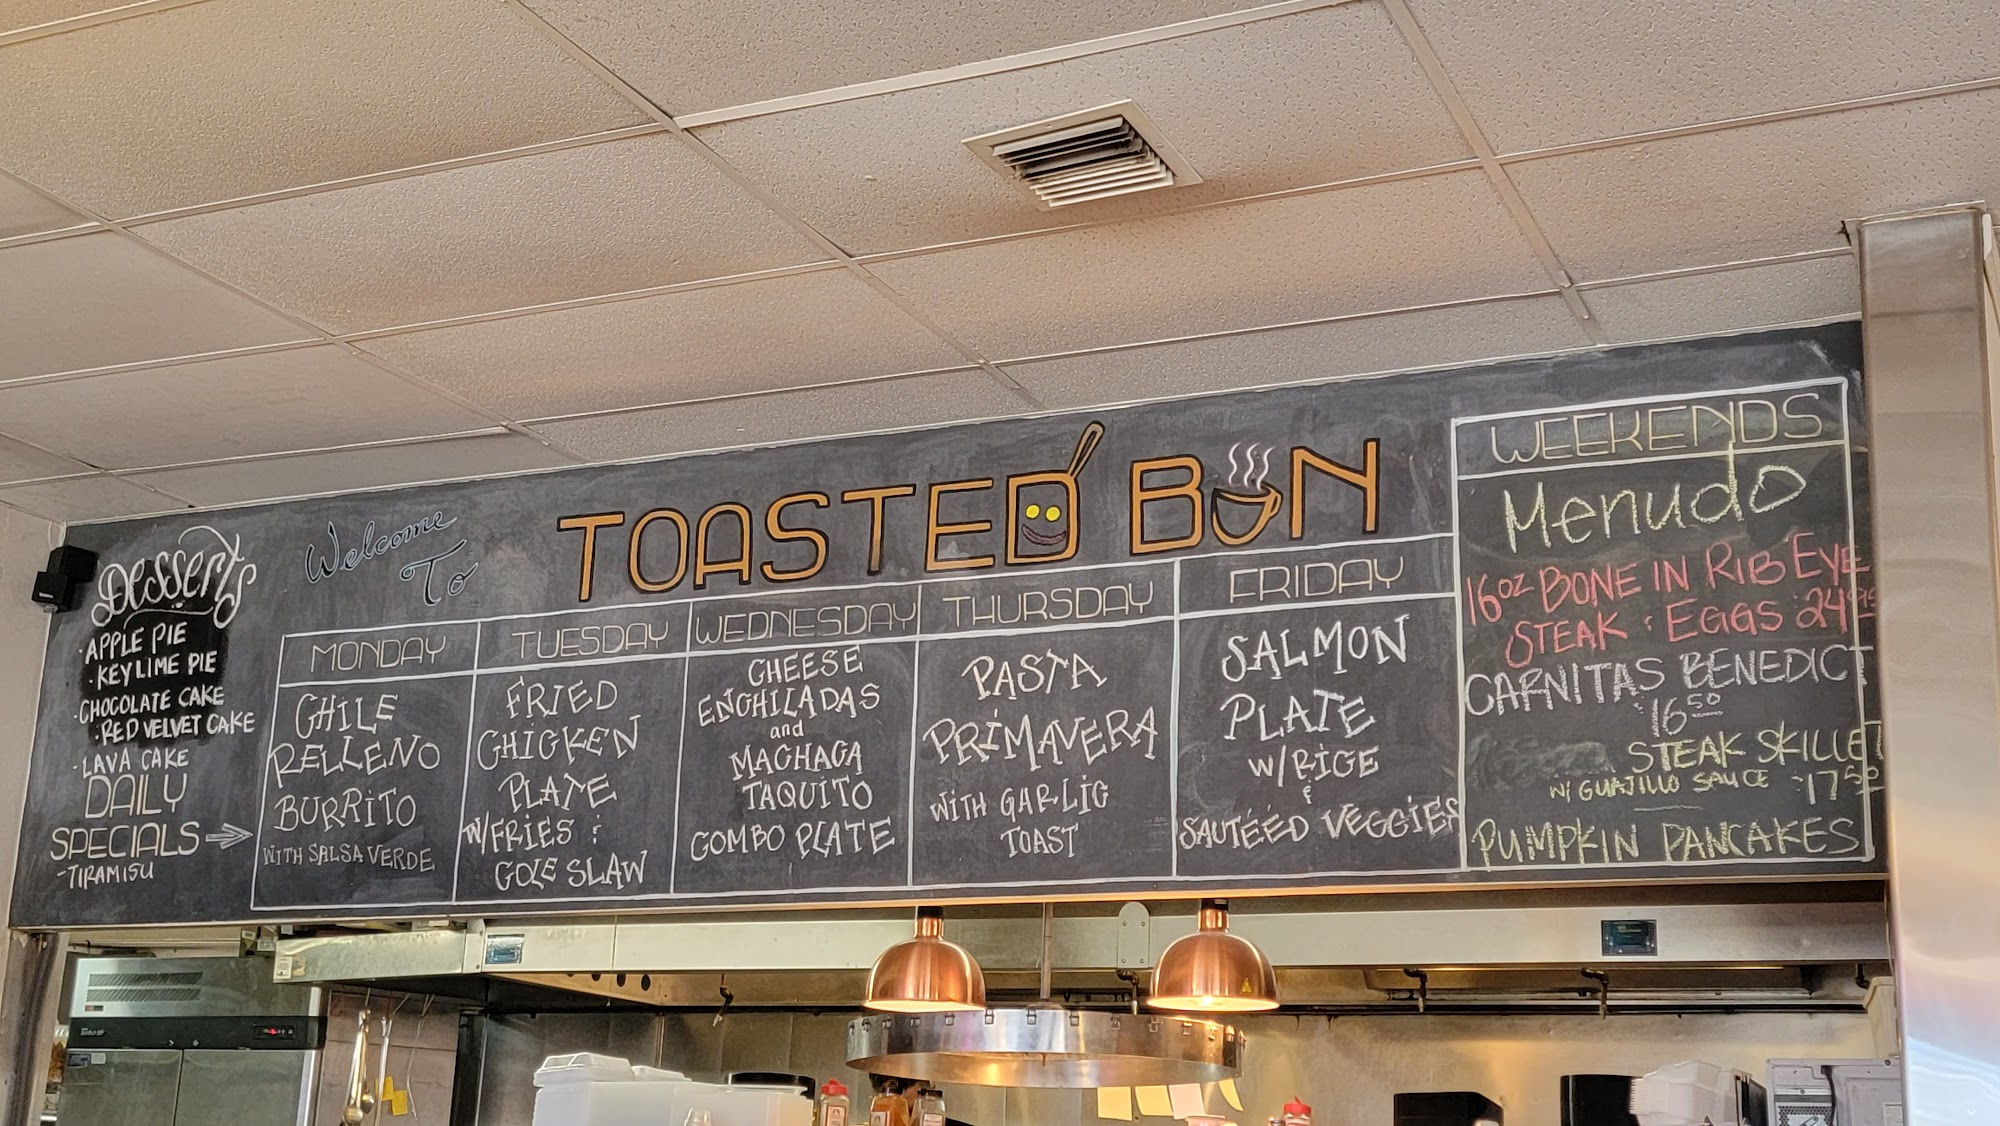 Desserts
·APPLE PIE
·KEY LIME PIE
·CHOCOLATE CAKE
·RED VELVET CAKE
·LAVA CAKE
DAILY
SPECIALS
-TIRAMISU
Welcome
To
TOASTED BUN
MONDAY
CHILE
RELLENO
BURRITO
WITH SALSA VERDE
TUESDAY
FRIED
CHICKEN
PLATE
W/FRIES &
COLE SLAW
WEDNESDAY
CHEESE
ENCHILADAS
and
MACHACA
TAQUITO
COMBO PLATE
THURSDAY
PASTA
PRIMAVERA
WITH GARLIC
TOAST
FRIDAY
SALMON
PLATE
W/RICE
&
SAUTÉÉD VEGGIES
WEEKENDS
Menudo
16oz BONE IN RIB EYE
STEAK & EGGS 24.95
CARNITAS BENEDICT
16.50
STEAK SKILLET
W/ GUAJILLO SAUCE 17.50
PUMPKIN PANCAKES